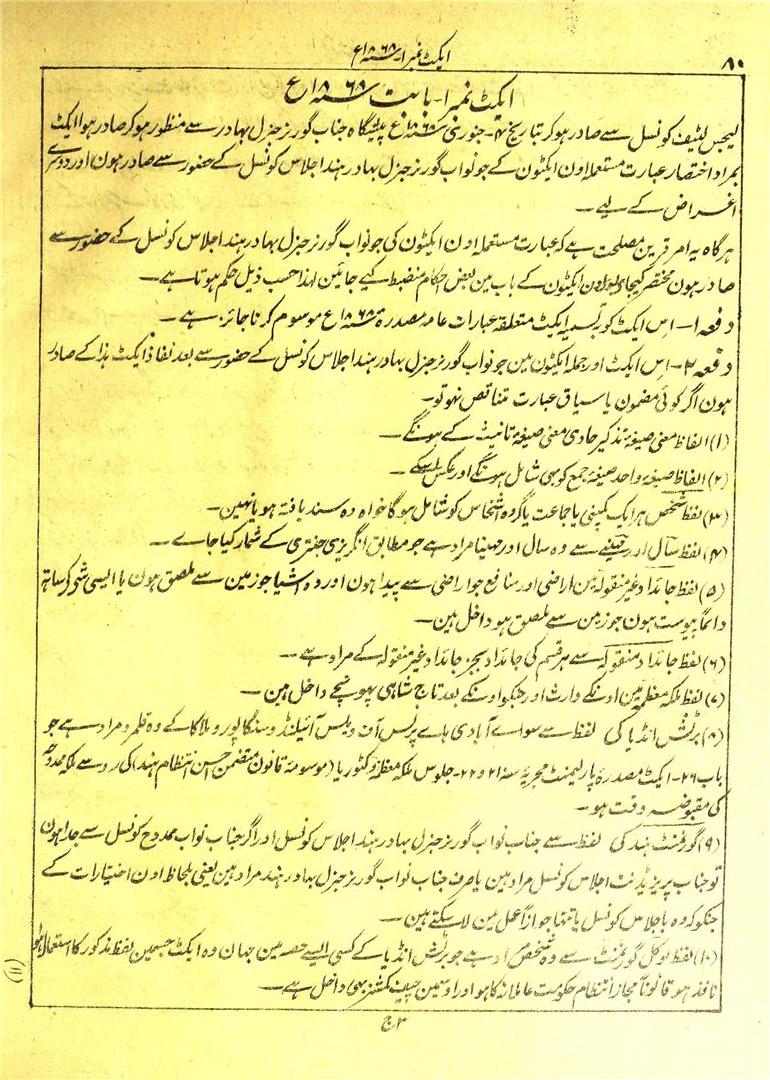 ایکٹ نمبر ۱ ۔ سنہ ۱۸۶۸ع
۸۰
ایکٹ نمبر ۱ ۔ بابت سنہ ۱۸۶۸ ع
لیجس لیٹیف کونسل سے صادر ہوکر بتاریخ ۴ ۔ جنوری سنہ ۱۸۶۸ع پیشگاہ جناب گورنر جنرل بہادر سے منظور ہوکر صادر ہوا ایکٹ
بمراد اختصار عبارت مستعملہ اون ایکٹون کے جو نواب گورنر جنرل بہادر ہند اجلاس کونسل کے حضور سے صادر ہون اور دوسرے
اغراض کے لیے ۔
ہرگاہ یہ امر قرین مصلحت ہے کہ عبارت مستعملہ اون ایکٹون کی جو نواب گورنر جنرل بہادر ہند اجلاس کونسل کے حضور سے
صادر ہون مختصر کیجاے اور اون ایکٹون کے باب مین بعض احکام منضبط کیے جائین لہذا حسب ذیل حکم ہوتا ہے ۔
دفعہ ۱ ۔ اس ایکٹ کو برسم ایکٹ متعلقہ عبارات عامہ مصدرہ سنہ ۱۸۶۸ع موسوم کرنا جائز ہے ۔
دفعہ ۲ ۔ اس ایکٹ اور جملہ ایکٹون مین جو نواب گورنر جنرل بہادر ہند اجلاس کونسل کے حضور سے بعد نفاذ ایکٹ ہذا کے صادر
ہون اگر کوئی مضمون یا سیاق عبارت تناقص نہو تو ۔
(۱) الفاظ معنی صیغۂ تذکیر حاوی معنی صیغۂ تانیث کے ہونگے ۔
(۲) الفاظ صیغۂ واحد صیغۂ جمع کو بھی شامل ہونگے اور عکس اسکے
(۳) لفظ شخص ہر ایک کمپنی یا جماعت یا گروہ اشخاص کو شامل ہوگا خواہ وہ سند یافتہ ہو یا نہین ۔
(۴) لفظ سال اور مہینے سے وہ سال اور مہینا مراد ہے جو مطابق انگریزی جنتری کے شمار کیا جاے ۔
(۵) لفظ جائداد غیر منقولہ مین اراضی اور منافع جو اراضی سے پیدا ہون اور وہ اشیا جو زمین سے ملصق ہون یا ایسی شی کے ساتھ
دائماً پیوست ہون جو زمین سے ملصق ہو داخل ہین ۔
(۶) لفظ جائداد منقولہ سے ہر قسم کی جائداد بجز جائداد غیر منقولہ کے مراد ہے ۔
(۷) لفظ ملکہ معظمہ مین اونکے وارث اور جنکو اونکے بعد تاج شاہی پہونچے داخل ہین ۔
(۸) برٹش انڈیا کی لفظ سے سواے آبادی ہاے پرنس آف ویلس آئیلنڈ و سنگاپور و ملاکا کے وہ قلمرو مراد ہے جو
باب ۲۶ ۔ ایکٹ مصدرۂ پارلیمنٹ مجریۂ سنہ ۲۱ و ۲۲ ۔ جلوس ملکہ معظمہ وکٹوریا (موسومۂ قانون متضمن احسن انتظام ہند) کی رو سے ملکہ ممدوحہ
کی مقبوضہ وقت ہو ۔
(۹) گورنمنٹ ہند کی لفظ سے جناب نواب گورنر جنرل بہادر ہند اجلاس کونسل اور اگر جناب نواب ممدوح کونسل سے جدا ہون
تو جناب پریزیڈنٹ اجلاس کونسل مراد ہین یا صرف جناب نواب گورنر جنرل بہادر ہند مراد ہین یعنی بلحاظ اون اختیارات کے
جنکو کہ وہ با جلاس کونسل یا تنہا جوازاً عمل مین لا سکتے ہین ۔
(۱۰) لفظ لوکل گورنمنٹ سے وہ شخص مراد ہے جو برٹش انڈیا کے کسی ایسے حصہ مین جہان وہ ایکٹ جسمین لفظ مذکور کا استعمال ہو
نافذ ہو قانوناً مجاز انتظام حکومت عاملانہ کا ہو اور اوسمین چیف کمشنر بھی داخل ہے ۔
(۱۱)
۳ ج